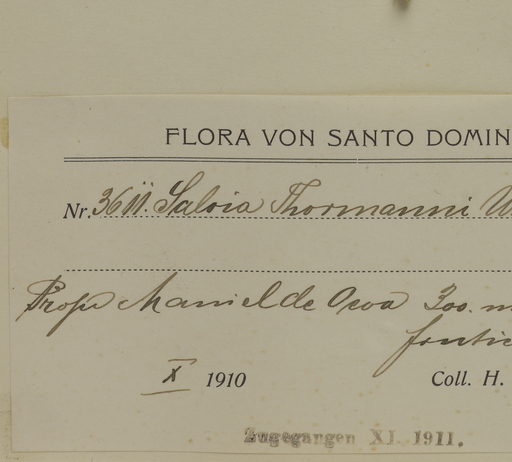 FLORA VON SANTO DOMIN
Nr. 3611. Salvia Thormanni U
Prope Maniel de Ocoa 300. m
X 1910 Coll. H.
Zugegangen XI. 1911.